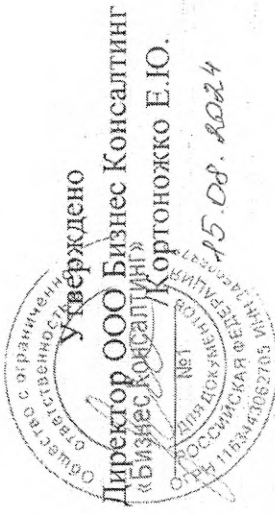 Утверждено
Директор ООО Бизнес Консалтинг
Кортоножко Е.Ю.
15.08.2024
Общество с ограниченной
ответственностью
«Бизнес Консалтинг»
№1
для документов
РОССИЙСКАЯ ФЕДЕРАЦИЯ